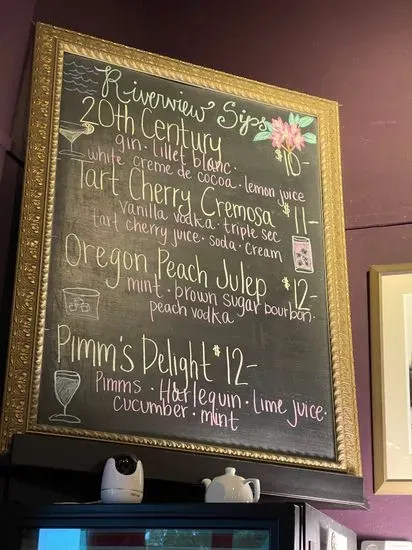 Riverview Sips
20th Century $10-
gin · lillet blanc ·
white creme de cocoa · lemon juice
Tart Cherry Cremosa $11-
vanilla vodka · triple sec
tart cherry juice · soda · cream
Oregon Peach Julep $12-
mint · brown sugar bourbon ·
peach vodka
Pimm's Delight $12-
Pimms · Harlequin · lime juice ·
cucumber · mint